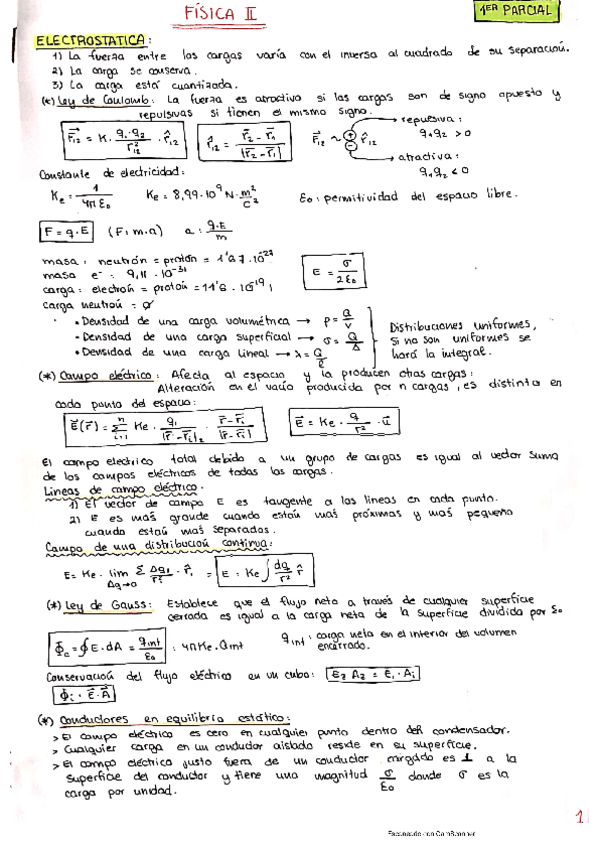 FÍSICA II
1ER PARCIAL
ELECTROSTATICA:
1) La fuerza entre las cargas varía con el inversa al cuadrado de su separación.
2) La carga se conserva.
3) La carga está cuantizada.
(*) Ley de Coulomb: La fuerza es atractiva si las cargas son de signo opuesto y
repulsivas si tienen el mismo signo.
F⃗12 = K · q1·q2 / r²12 · r̂12
r̂12 = r⃗2 - r⃗1 / |r⃗2 - r⃗1|
F⃗12 ~ r̂12
repulsiva:
q1q2 > 0
atractiva:
q1q2 < 0
Constante de electricidad:
Ke = 1 / 4π ε0
Ke = 8,99·10⁹ N· m² / C²
ε0: permitividad del espacio libre.
F = q·E
(F: m·a)
a: q·E / m
masa: neutrón = protón = 1'67·10⁻²⁷
masa e⁻: 9,11·10⁻³¹
carga: electrón = protón = 1'6·10⁻¹⁹
E = σ / 2ε0
carga neutrón = ∅
• Densidad de una carga volumétrica → ρ = Q / V
• Densidad de una carga superficial → σ = Q / A
• Densidad de una carga lineal → λ = Q / ℓ
Distribuciones uniformes,
si no son uniformes se
hará la integral.
(*) Campo eléctrico: Afecta al espacio y la producen otras cargas:
Alteración en el vacío producida por n cargas, es distinta en
cada punto del espacio:
E⃗(r⃗) = Σ Ke · qi / |r⃗ - r⃗i|² · r⃗ - r⃗i / |r⃗ - r⃗i|
E⃗ = Ke · q / r² · u⃗
El campo electrico total debido a un grupo de cargas es igual al vector suma
de los campos eléctricos de todas las cargas.
Lineas de campo eléctrico.
1) El vector de campo E es tangente a las lineas en cada punto.
2) E es más grande cuando están más próximas y más pequeño
cuando están más separadas.
Campo de una distribución continua:
E = Ke · lim Δq→0 Σ Δqi / ri² · r̂i = E = Ke ∫ dq / r² r̂
(*) Ley de Gauss: Establece que el flujo neta a través de cualquier superficie
cerrada es igual a la carga neta de la superficie dividida por ε0
Φc = ∮ E·dA = qint / ε0 : 4πKe·Qint
qint : carga neta en el interior del volumen
encerrado.
Conservación del flujo eléctrico en un cubo: E2 A2 = E1·A1
Φi = E⃗·A⃗
(*) Conductores en equilibrio estático:
> El campo eléctrico es cero en cualquier punto dentro del condensador.
> Cualquier carga en un conductor aislado reside en su superficie.
> El campo eléctrico justo fuera de un conductor cargado es ⊥ a la
superficie del conductor y tiene una magnitud σ / ε0 donde σ es la
carga por unidad.
1
Escaneado con CamScanner